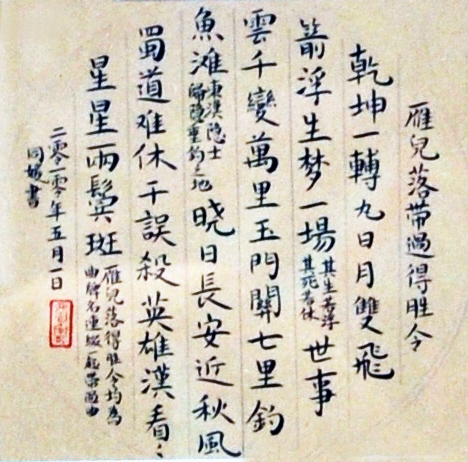 雁兒落帶過得胜令
乾坤一轉九日月雙飛
箭浮生梦一場
其生若浮
其死若休
世事
雲千變萬里玉門關七里釣
魚滩
東漢隐士
歸隐垂钓之地
晓日長安近秋風
蜀道难休干誤殺英雄漢看々
星星兩鬓斑
雁兒落得胜令均為
曲牌名連綴一起帶過曲
二零一零年五月一日
書